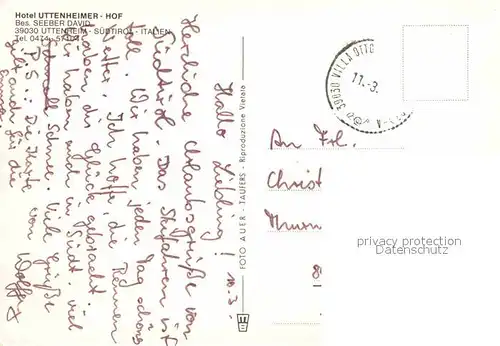 Hotel UTTENHEIMER - HOF
Bes. SEEBER DAVID
39030 UTTENHEIM - SÜDTIROL - ITALIEN
Tel. 0474
10.3.
Hallo Liebling!
Herzliche Urlaubsgrüße von
Südtirol. Das Skifahren ist
toll. Wir haben jeden Tag schönes
Wetter. Ich hoffe, die Rennen
haben dir Glück gebracht.
Wir haben auch in Südt. viel
Schnee. Viele Grüße
von Wolfgang
P.S.: Die Karte
ist auch für die
FOTO AUER - TAUFERS - Riproduzione Vietata
39030 VILLA OTTO
11.-3.
An Frl.
Christ
privacy protection
Datenschutz